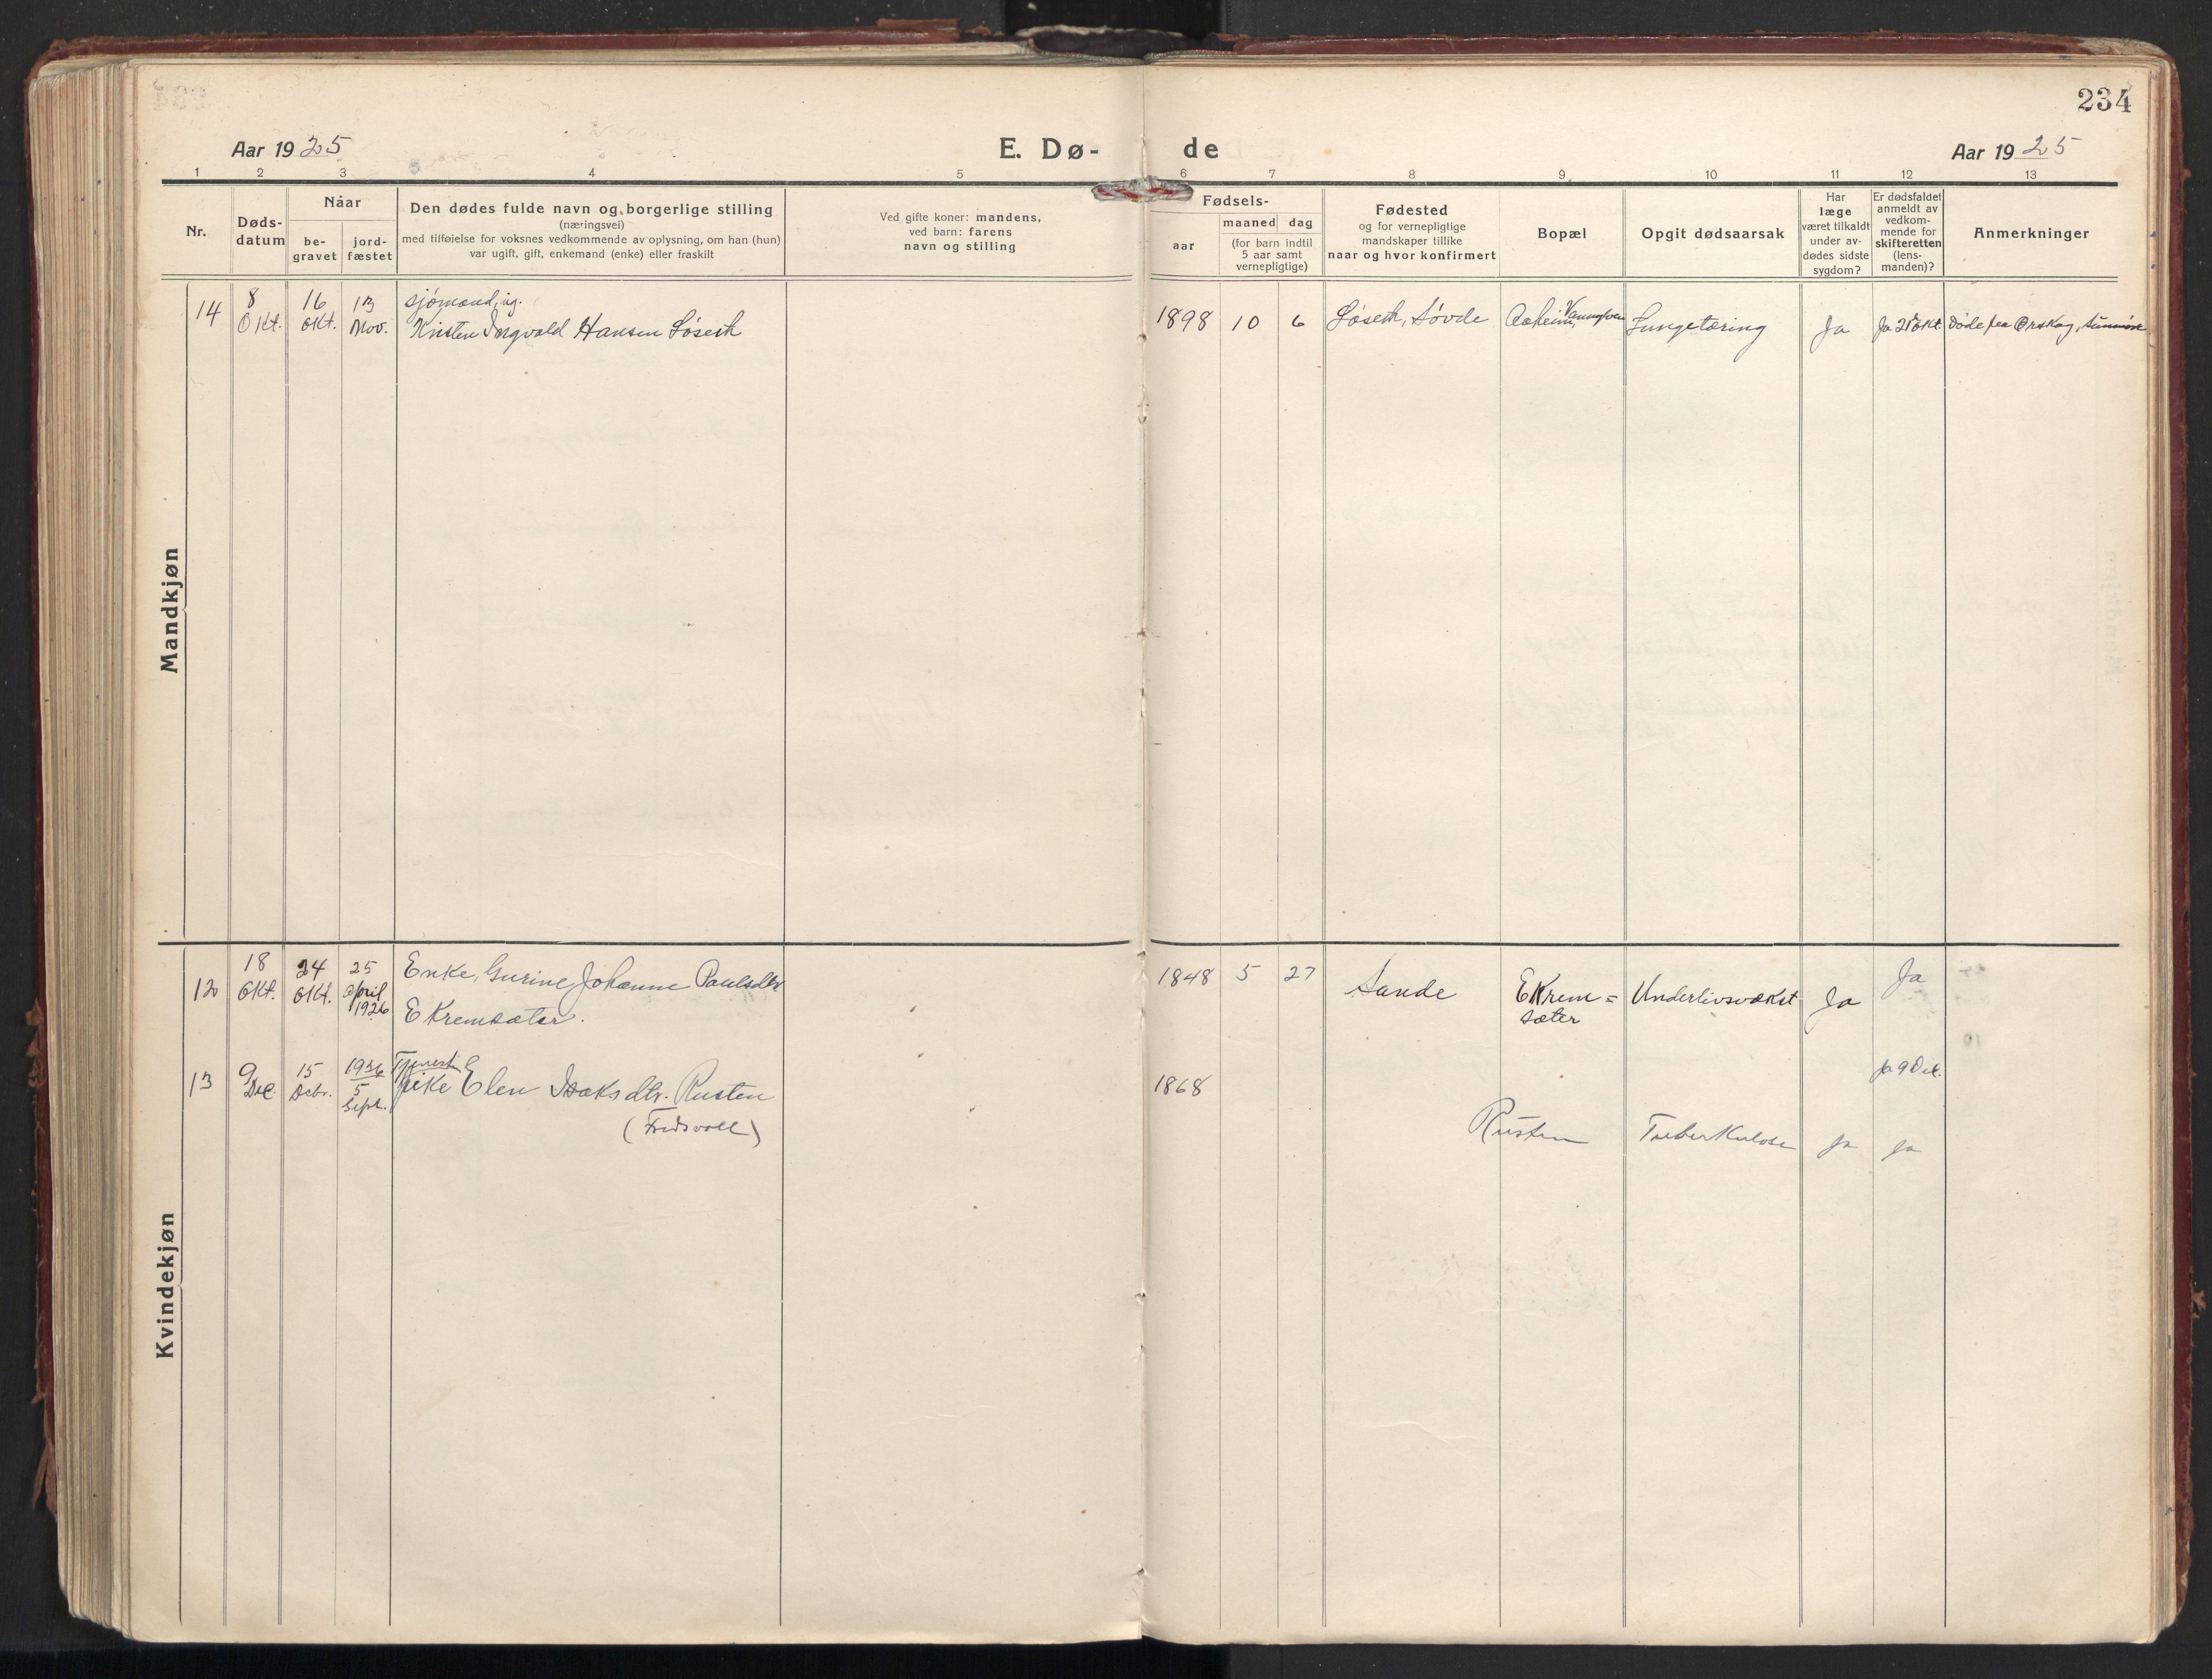 234
Aar 1925
E. Dø-
de
Aar 1925
1 2 3 4 5 6 7 8 9 10 11 12 13
Nr.
Døds-
datum
Naar
be-
gravet
jord-
fæstet
Den dødes fulde navn og borgerlige stilling
(næringsvei)
med tilføielse for voksnes vedkommende av oplysning, om han (hun)
var ugift, gift, enkemand (enke) eller fraskilt
Ved gifte koner: mandens,
ved barn: farens
navn og stilling
Fødsels-
aar
maaned dag
(for barn indtil
5 aar samt
vernepligtige)
Fødested
og for vernepligtige
mandskaper tillike
naar og hvor konfirmert
Bopæl
Opgit dødsaarsak
Har
læge
været tilkaldt
under av-
dødes sidste
sygdom?
Er dødsfaldet
anmeldt av
vedkom-
mende for
skifteretten
(lens-
manden)?
Anmerkninger
Mandkjøn
14
8
Okt.
16
Okt.
13
Nov.
sjømand, ug.
Kristen Ingvald Hansen Løseth
1898 10 6
Løseth, Søvde
Aaheim, Vannylven
Lungetæring
Ja
Ja 21 Okt.
Døde paa Ørskog, Sunmøre
Kvindekjøn
12
18
Okt.
24
Okt.
25
April
1926
Enke, Gurine Johanne Paulsdtr
Ekremsæter.
1848 5 27
Sande
Ekrem=
sæter
Underlivsvækst
Ja
Ja
13
9
Dec.
15
Debr.
1926
5
Sept.
Tjenest
pike Elen Isaksdtr. Rusten
(Fredsvoll)
1868
Rusten
Tuberkulose
Ja
Ja 9 Dec.
Ja